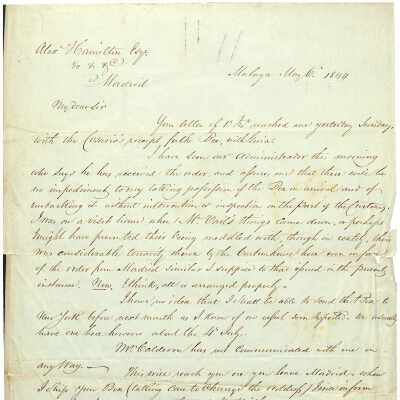 Alexr Hamilton Esqr
&c &c &c
Madrid
Malaga May 6th 1844
My dear Sir
Your letter of 1st reached me yesterday Sunday,
with the Courier's prompt for the Box, with Lucia.
I have seen our Administrador this morning
who says he has received the order, and assures me that there will be
no impediment to my taking possession of the Box on arrival and of
embarking it without intervention or inspection on the part of the Customs.
I was on a visit when Mr things came down, or perhaps
I might have prevented their being meddled with, though in reality, there
was considerable shown by the Custom house here even in
of the order from Madrid similar I suppose to that issued in the present
instance. Now, I think, all is arranged properly.
I have no idea that I shall be able to send the Box to
New York before next month as I know of no vessel soon expected. We usually
have one here however about the 4th July.
Mr Calderon has not communicated with me in
any way.
This will reach you ere you leave Madrid, when
I ship your Box (taking care to change the address) I in inform